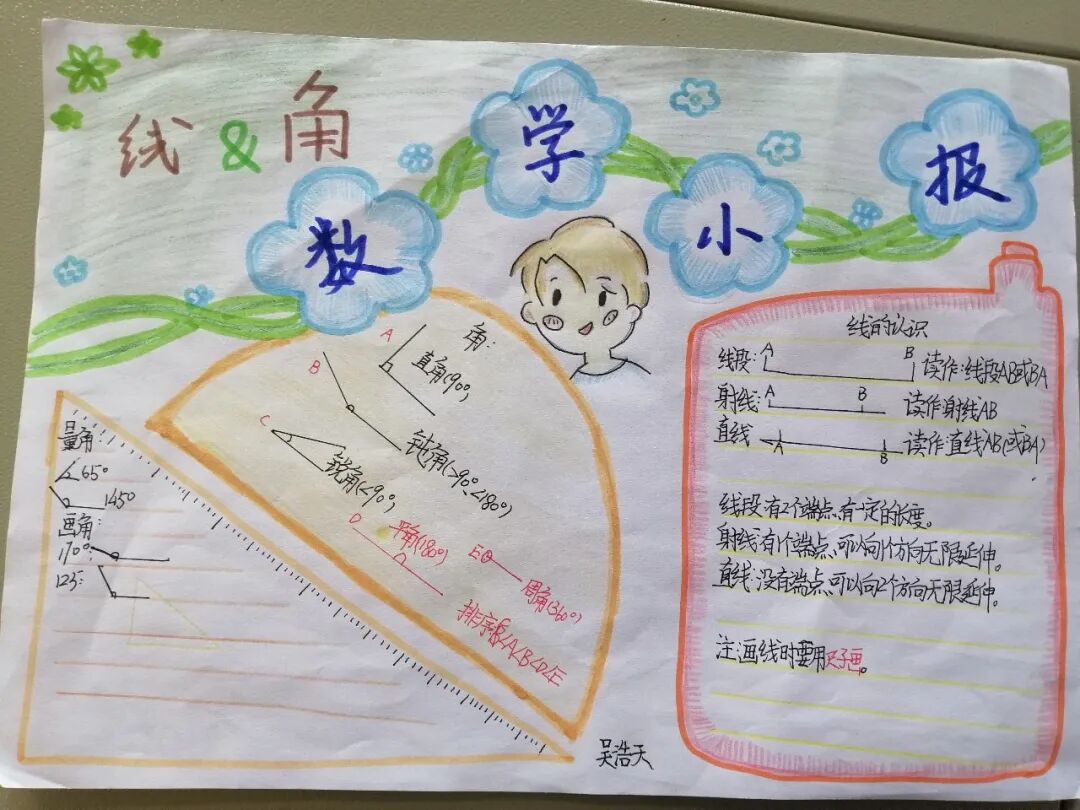 线&角
数学小报
角:
A
直角(90°)
B
钝角(>90°<180°)
C
锐角(<90°)
D
平角(180°)
E
周角(360°)
量角:
65°
145°
画角:
170°:
125:
线的认识
线段: A B 读作:线段AB或BA
射线: A B 读作:射线AB
直线 A B 读作:直线AB(或BA)
线段:有2个端点、有一定的长度。
射线:有1个端点、可以向1个方向无限延伸。
直线:没有端点、可以向2个方向无限延伸。
注:画线时要用尺子画。
吴浩天